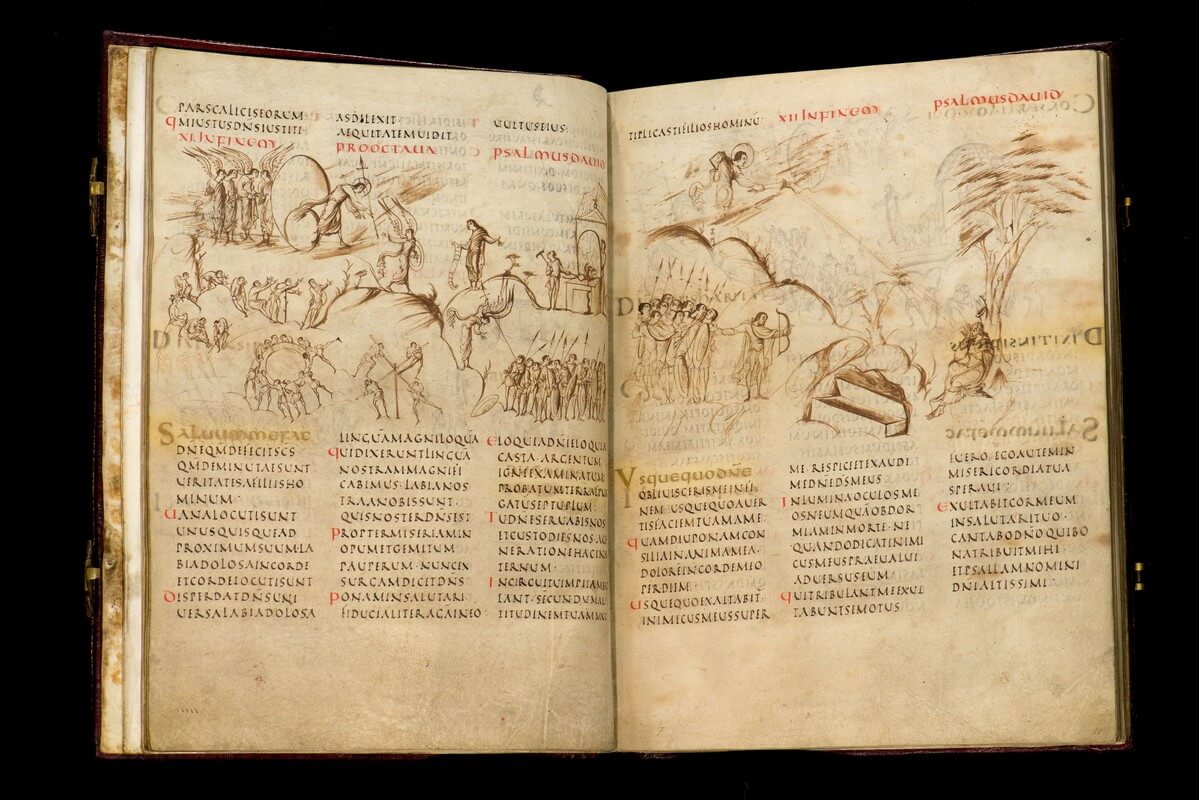 PARSCALICISEORUM
QMIUSTUSDNSIUSTITI
ASDILEXIT
AEQUITATEMUIDIT
UULTUSEIUS
XI. INFINEM
PROOCTAUA
PSALMUSDAUID
SALUUMMEFAC
DNEQMDEFECITSCS
QMDEMINUTAESUNT
UERITATESAFILIISHO
MINUM
UANALOCUTISUNT
UNUSQUISQUEAD
PROXIMUMSUUMLA
BIADOLOSAINCORDE
ETCORDELOCUTISUNT
DISPERDATDNSUNI
UERSALABIADOLOSA
LINGUAMAGNILOQUA
QUIDIXERUNTLINGUA
NOSTRAMMAGNIFI
CABIMUS·LABIANOS
TRAANOBISSUNT·
QUISNOSTERDNSEST
PROPTERMISERIAMIN
OPUMETGEMITUM
PAUPERUM·NUNCEX
SURGAMDICITDNS
PONAMINSALUTARI·
FIDUCIALITERAGAINEO
ELOQUIADNIELOQUIA
CASTA·ARGENTUM
IGNEEXAMINATUM
PROBATUMTERRAEPUR
GATUSEPTUPLUM·
TUDNESERUABISNOS
ETCUSTODIESNOS·AGE
NERATIONEHACINAE
TERNUM·
INCIRCUITUIMPIIAMBU
LANT·SECUNDUMAL
TITUDINEMTUAMMUL
TIPLICASTIFILIOSHOMINU·
XII INFINEM
PSALMUSDAUID
USQUEQUODNE
OBLIUISCERISMEINFI
NEM·USQUEQUOAUER
TISFACIEMTUAMAME·
QUAMDIUPONAMCON
SILIAINANIMAMEA·
DOLOREINCORDEMEO
PERDIEM·
USQUEQUOEXALTABIT
INIMICUSMEUSSUPER
ME·RESPICEETEXAUDI
MEDNEDSMEUS
INLUMINAOCULOSME
OSNEUMQUAOBDOR
MIAMINMORTE·NE
QUANDODICATINIMI
CUSMEUSPRAEUALUI
ADUERSUSEUM
QUITRIBULANTMEEXUL
TABUNTSIMOTUS
FUERO·EGOAUTEMIN
MISERICORDIATUA
SPERAUI·
EXULTABITCORMEUM
INSALUTARITUO·
CANTABODNOQUIBO
NATRIBUITMIHI·
ETPSALLAMNOMINI
DNIALTISSIMI·
7